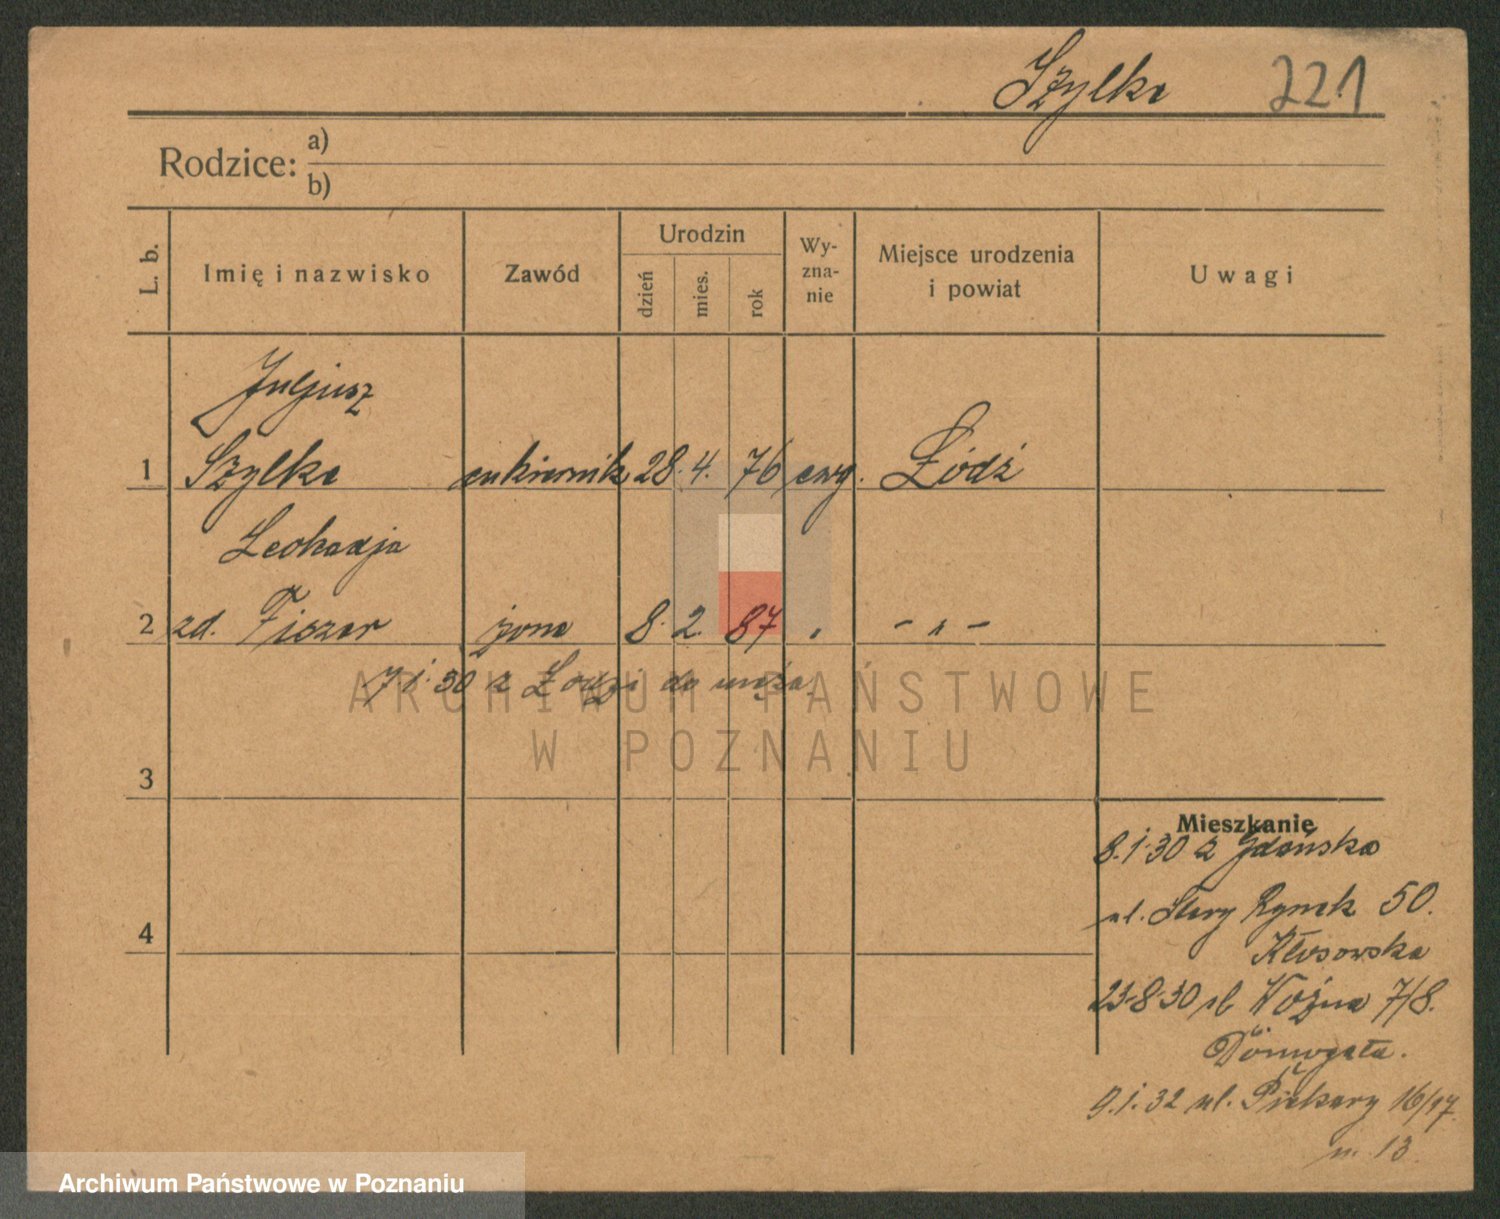 Szylke 221
Rodzice: a)
b)
L. b. Imię i nazwisko Zawód Urodzin dzień mies. rok Wy-zna-nie Miejsce urodzenia i powiat Uwagi
Juljusz
1 Szylke cukiernik 28. 4. 76 ewg. Łódź
Leokadja
2 zd. Fiszer żona 8. 2. 87 " - " -
7.1.30 z Łodzi do męża.
ARCHIWUM PAŃSTWOWE
W POZNANIU
3
4
Mieszkanie
8.1.30 z Gdańska
ul. Stary Rynek 50.
Kłosowska
23.8.30 ul Woźna 7/8.
9.1.32 ul. Piekary 16/17
m. 13
Archiwum Państwowe w Poznaniu